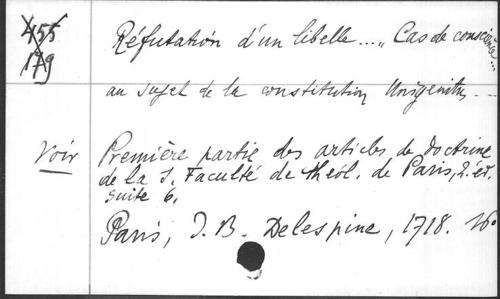 455
179
Réfutation d'un libelle...., "Cas de conscience...
au sujet de la constitution Unigenitus....
Voir Première partie des articles de Doctrine
de la S. Faculté de théol. de Paris, 2. éd.
suite 6.
Paris, J. B. Delespine, 1718. 16°